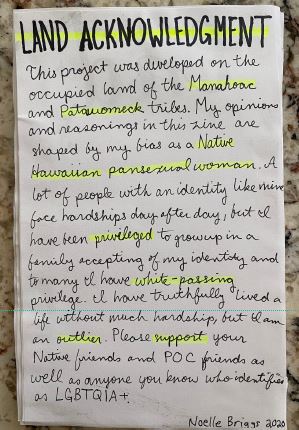 LAND ACKNOWLEDGMENT
This project was dveloped on the
occupied land of the Manahoac
and Patawomeck tribes. My opinions
and reasonings in this zine are
shaped by my bias as a Native
Hawaiian pansexual woman. A
lot of people with an identity like mine
face hardships day after day, but I
have been privileged to grow up in a
family accepting of my identity and
to many I have white-passing
privilege. I have truthfully lived a
life without much hardship, but I am
an outlier. Please support your
Native friends and POC friends as
well as anyone you know who identifies
as LGBTQIA+.
Noelle Briggs 2020